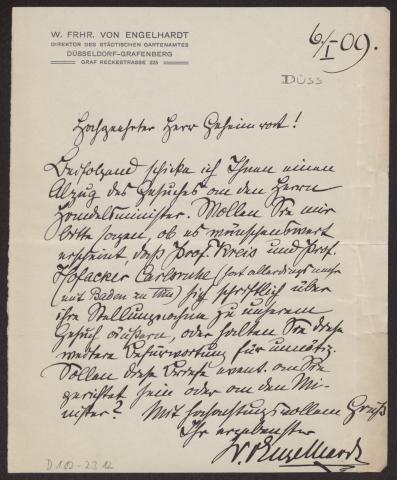 W. FRHR. VON ENGELHARDT
DIREKTOR DES STÄDTISCHEN GARTENAMTES
DÜSSELDORF-GRAFENBERG
GRAF RECKESTRASSE 225
6/I 09.
DÜSS
Hochgeehrter Herr Geheimrat!
Beifolgend schicke ich Ihnen einen
Abzug des Gesuches an den Herrn
Handelsminister. Wollen Sie mir
bitte sagen, ob es wünschenswert
erscheint, daß Prof. Kreis und Prof.
Hofacker Carlsruhe (hat allerdings mehr
mit Baden zu thun) sich schriftlich über
ihre Stellungnahme zu unserem
Gesuch äußern, oder halten Sie diese
weitere Befürwortung für unnötig.
Sollen diese Briefe event. an Sie
gerichtet sein oder an den Mi-
nister? Mit hochachtungsvollem Gruß
Ihr ergebenster
W. v Engelhardt